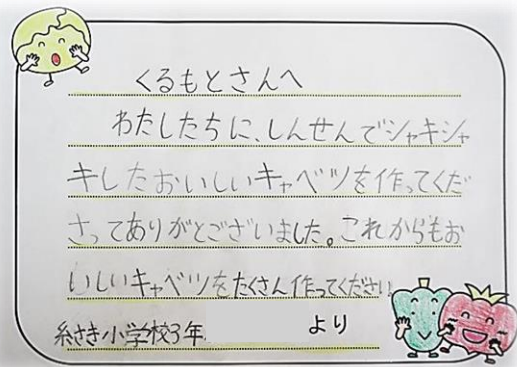 くるもとさんへ
わたしたちに、しんせんでシャキシャ
キしたおいしいキャベツを作ってくだ
さってありがとございました。これからもお
いしいキャベツをたくさん作ってください
糸さき小学校3年 より